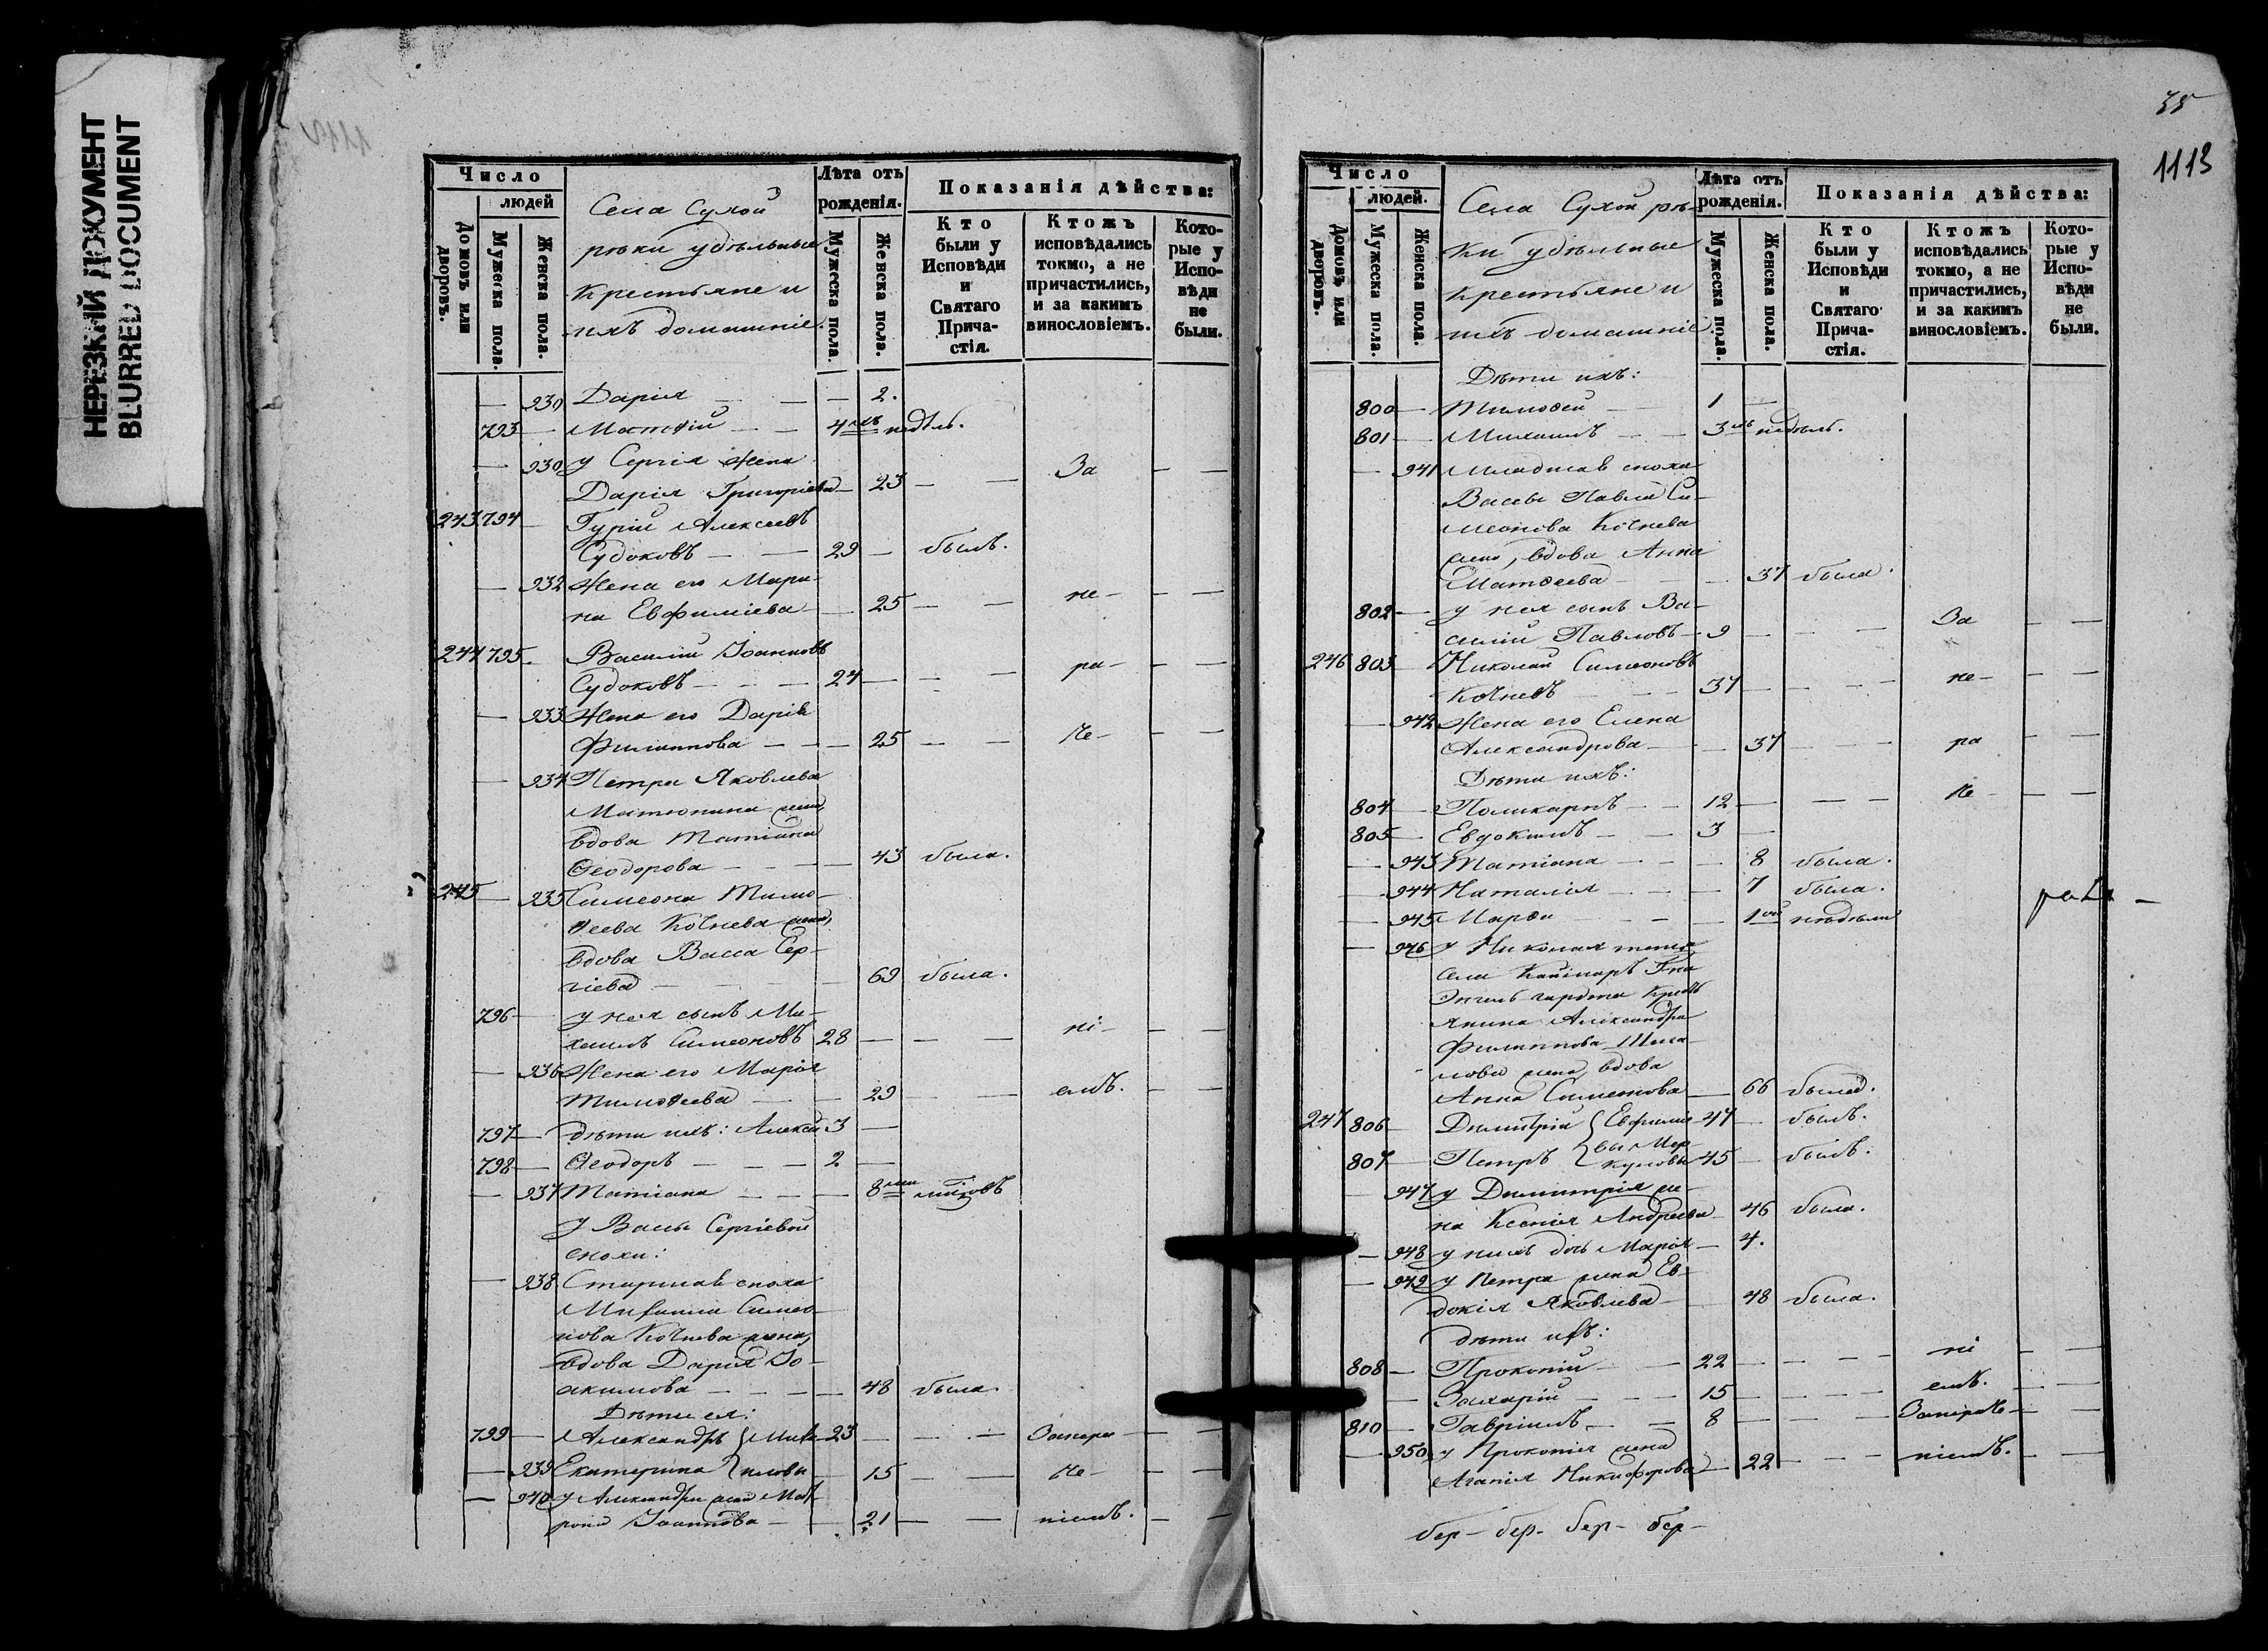 НЕРЕЗКИЙ ДОКУМЕНТ
BLURRED DOCUMENT
Число
людей
Домовъ или дворовъ.
Мужеска пола.
Женска пола.
Села Сухой
рѣки удѣльные
крестьяне и
ихъ домашніе.
Лѣта отъ рожденія.
Мужеска пола.
Женска пола.
Показанія дѣйства:
Кто были у Исповѣди и Святаго Причастія.
Ктожъ исповѣдались токмо, а не причастились, и за какимъ винословіемъ.
Которые у Исповѣди не были.
930 Дарія — — — 2.
793 — Матѳій — — 4 недѣль.
930 у Сергія жена
Дарія Григоріева — 23 — — За — —
243 794 — Гурій Алексеевъ
Судоковъ — — 29 — былъ.
— 932 Жена его Мари-
на Евфиміева — 25 — — не- — —
244 795. Василій Іоанновъ
Судоковъ — — — 24 — — — ра- — —
— 933 Жена его Дарія
Филиппова — — — 25 — — че- — —
— 934 Петра Яковлева
Матюнина жена
вдова Татіана
Ѳеодорова — — — 43 была.
245 — 935 Симеона Тимо-
ѳеева Кочнева жена,
вдова Васса Сер-
гіева — — 69 была.
796 — у нея сынъ Ми-
хаилъ Симеоновъ 28 — — — ні- — —
— 936 Жена его Марія
Тимоѳеева — — 29 — — емъ. — —
797 — дѣти ихъ: Алексѣй 3 —
798 — Ѳеодоръ — — — 2 —
— 937 Татіана — — — 8
у Вассы Сергіевой
снохи:
— 938 Старшая сноха
Михаила Симео-
нова Кочнева жена,
вдова Дарія Іо-
акимова — — — — 48 была.
Дѣти ея:
799 — Александръ } Миха- 23 — — — Запера — —
— 939 Екатерина } иловы — 15 — — тe- — —
— 940 у Александра жена Мат-
рона Іоаннова — — 21 — — ніемъ. — —
38
1113
Число
людей.
Домовъ или дворовъ.
Мужеска пола.
Женска пола.
Села Сухой рѣ-
ки удѣльные
крестьяне и
ихъ домашніе
Лѣта отъ рожденія.
Мужеска пола.
Женска пола.
Показанія дѣйства:
Кто были у Исповѣди и Святаго Причастія.
Ктожъ исповѣдались токмо, а не причастились, и за какимъ винословіемъ.
Которые у Исповѣди не были.
Дѣти ихъ:
800 — Тимоѳей — — 1 —
801 — Михаилъ — — 3 недѣль.
— 941 Младшая сноха
Вассы Павла Си-
меонова Кочнева
жена, вдова Анна
Матѳеева — — — 37 была.
802 — у нея сынъ Ва-
силій Павловъ — 9 — — — За — —
246 803 — Николай Симеоновъ
Кочневъ — — 37 — — — не- — —
— 942 Жена его Елена
Александрова — — 37 — — ра — —
Дѣти ихъ:
804 — Поликарпъ — — 12 — — — че- — —
805 — Евдокимъ — — 3 —
— 943 Татіана — — — 8 была.
— 944 Наталія — — — 7 была.
— 945 Марѳа — — — 1 недѣли
— 946 у Николая теща,
села
крестья-
янина Александра
Филиппова
жена, вдова
Анна Симеонова — 66 была.
247 806 — Димитрій { Евфимі- 47 — былъ.
807 — Петръ { евы Мер-куловы 45 — былъ.
— 947 у Димитрія же-
на Ксенія Андреева — 46 была.
— 948 у нихъ дочь Марія — 4.
— 949 у Петра жена Ев-
докія Яковлева — 48 была.
дѣти ихъ:
808 — Прокопій — — 22 — — — ні — —
— Захарій — — 15 — — — емъ. — —
810 — Гавріилъ — — 8 — — — — —
— 950 у Прокопія жена
Агапія Никифорова — 22 — — ніемъ. — —
бер- бер- бер- бер-